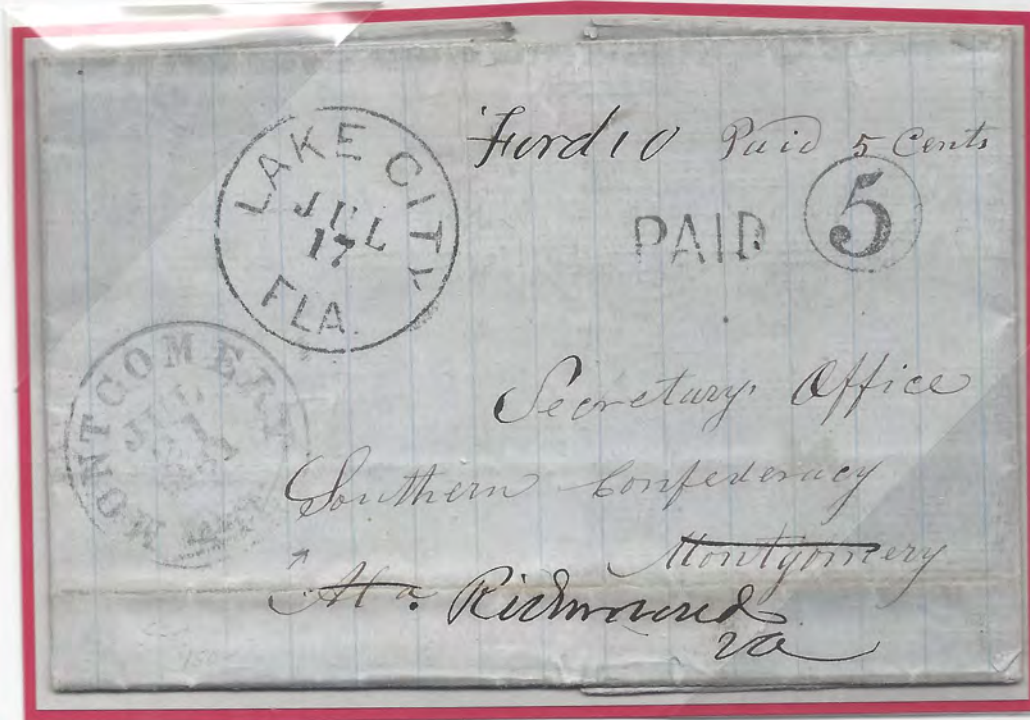 Ford 10 Paid 5 Cents
LAKE CITY
JUL
17
FLA.
PAID 5
MONTGOMERY
Secretary's Office
Southern Confederacy
Montgomery
Ala. Richmond
Va
150